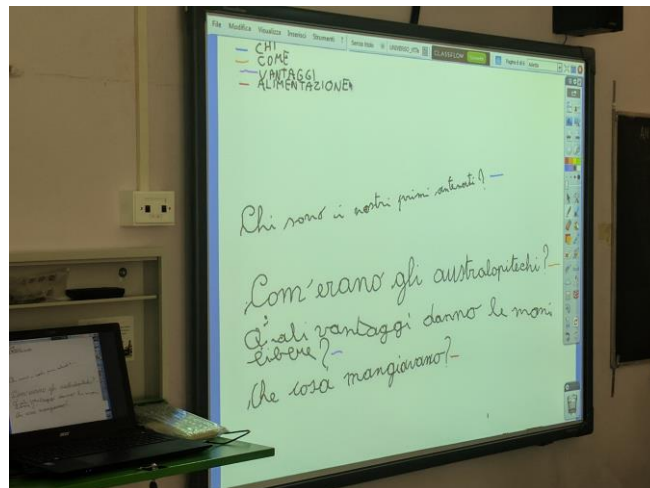 File Modifica Visualizza Inserisci Strumenti ?
Senza titolo UNIVERSO_VITA CLASSFLOW
CHI
COME
VANTAGGI
ALIMENTAZIONE
Chi sono i nostri primi antenati?
Com'erano gli australopitechi?
Quali vantaggi danno le mani
libere?
Che cosa mangiavano?
acer